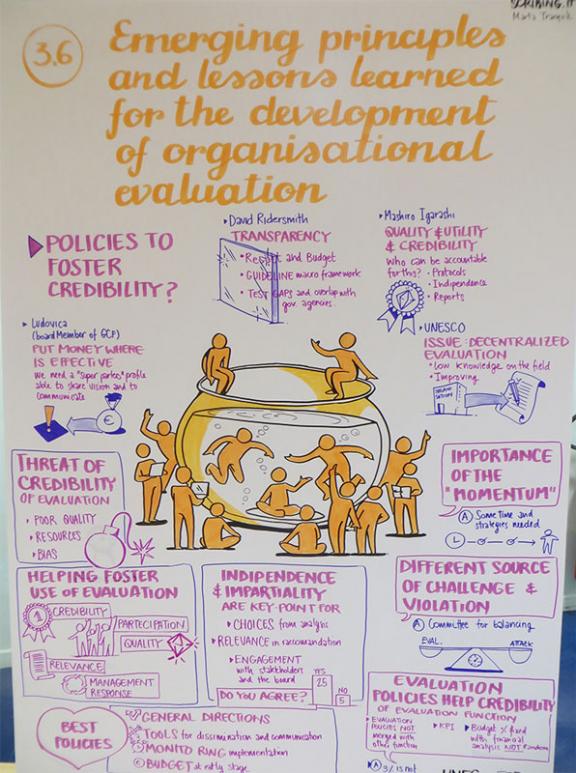 SCRIBING.IT
3.6
Emerging principles
and lessons learned
for the development
of organisational
evaluation
POLICIES TO
FOSTER
CREDIBILITY?
David Ridersmith
TRANSPARENCY
and Budget
GUIDELINE macro framework
TEST GAPS and overlap with
gov. agencies
Mashiro Igarashi
QUALITY & UTILITY
& CREDIBILITY
Who can be accountable
for this? • Protocols
• Independence
• Reports
Ludovica
(board Member of GCF)
PUT MONEY WHERE
IS EFFECTIVE
We need a "super partes" profile
able to share vision and to
communicate
UNESCO
ISSUE: DECENTRALIZED
EVALUATION
• Low knowledge on the field
• Improving
THREAT OF
CREDIBILITY
OF EVALUATION
POOR QUALITY
RESOURCES
BIAS
IMPORTANCE
OF THE
"MOMENTUM"
A Some time and
strategies needed
HELPING FOSTER
USE OF EVALUATION
1
CREDIBILITY
PARTECIPATION
QUALITY
RELEVANCE
MANAGEMENT
RESPONSE
INDIPENDENCE
& IMPARTIALITY
ARE KEY-POINT FOR
CHOICES from analysis
RELEVANCE in raccomandation
ENGAGEMENT
with stakeholders
and the board
DO YOU AGREE?
YES
25
NO
5
DIFFERENT SOURCE
OF CHALLENGE &
VIOLATION
A Committee for balancing
EVAL.
ATTACK
EVALUATION
POLICIES HELP CREDIBILITY
OF EVALUATION FUNCTION
EVALUATION
POLICIES NOT
merged with
other function
KPI
Budget % fixed
with financial
analysis NOT random
A 3% is not
BEST
POLICIES
GENERAL DIRECTIONS
TOOLS for dissemination and communication
MONITORING implementation
BUDGET at early stage